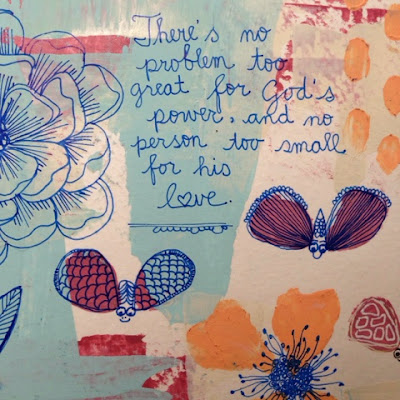 There's no
problem too
great for God's
power, and no
person too small
for his
love.